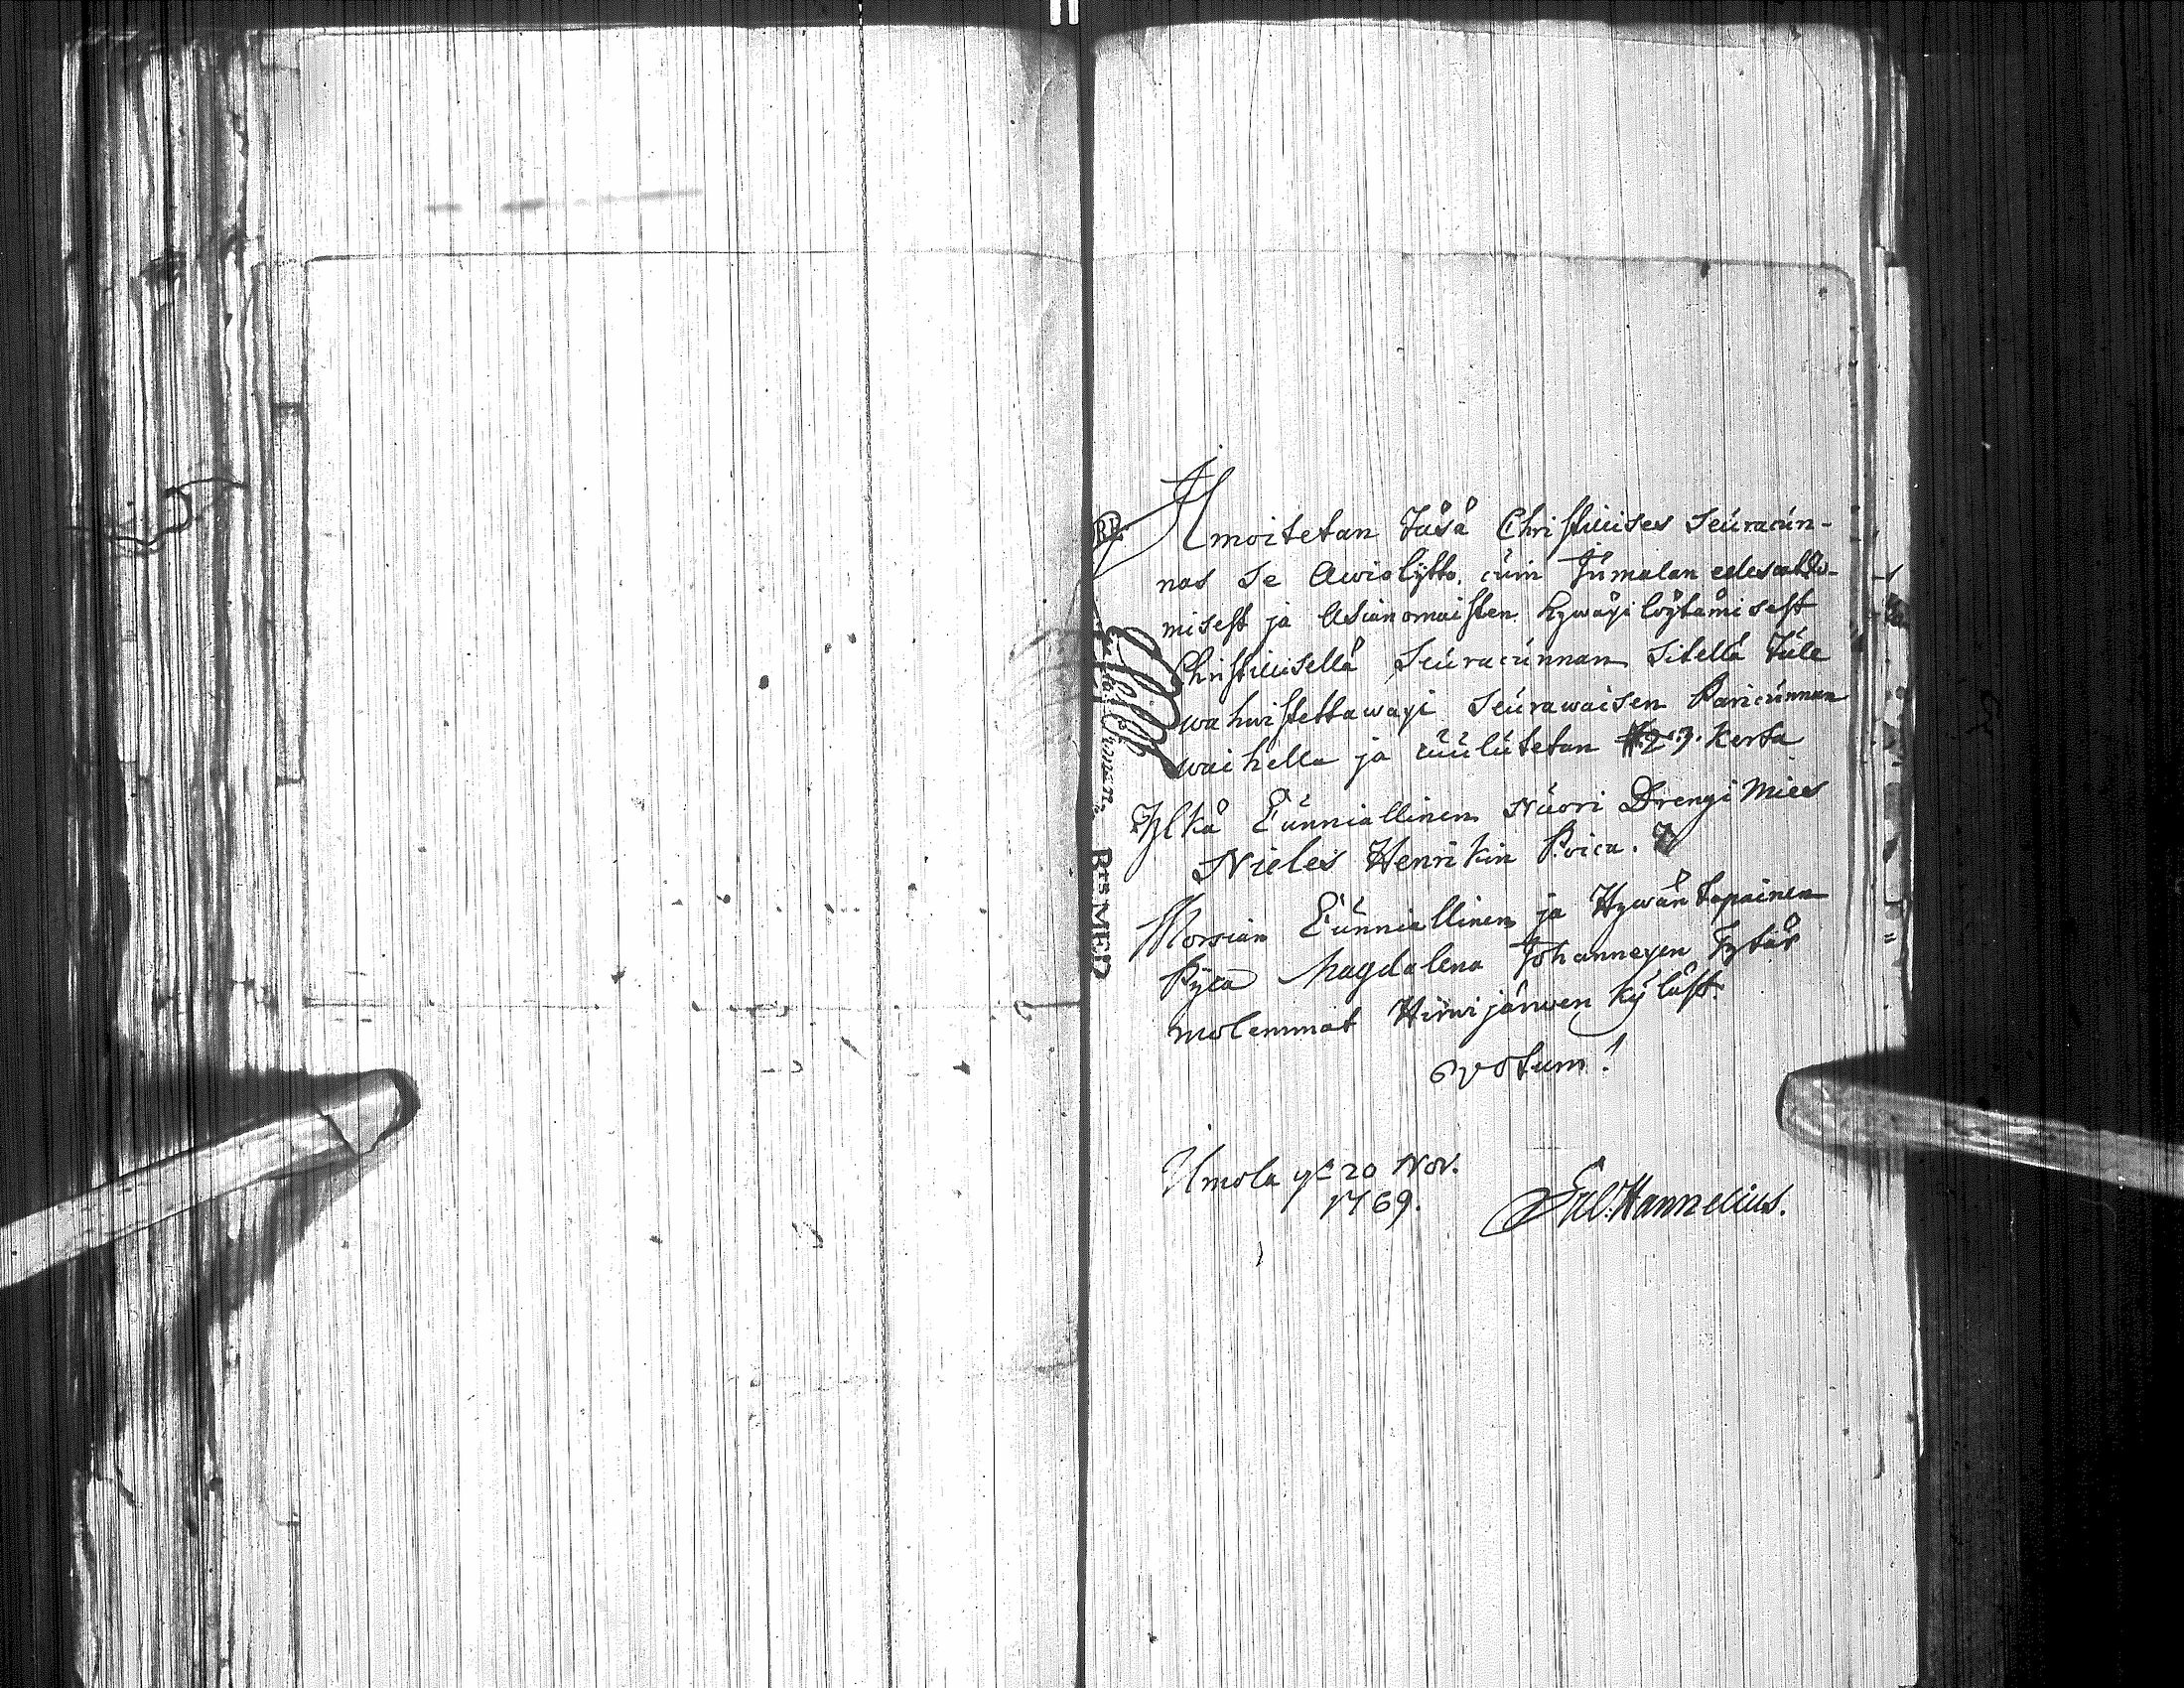 Ilmoitetan täsä Christilisės Seuracún-
nas Se Awiolijtto, cúin Júmalan edesautta-
misest ja Asianomaisten hywäxi löytämisest
Christilisellä Seúracúnnan Sitellä túle
wahwistettawaxi Seúrawaisen Paricúnnan
waihella ja cúúlútetan 2. 3. Kerta
Yl̃kä Cúnniallinen Núori Drengi Mies
Nieles Henrikin Poica.
Morsian Cúnniallinen ja Hywän tapainen
Pyca Magdalena Johannexen Tytär
molemmat Hirwijärwen Kyläst.
Votum!
Umola ye 20 Nov.
1769.
Sal: Hannelius.
RE
BTS MED